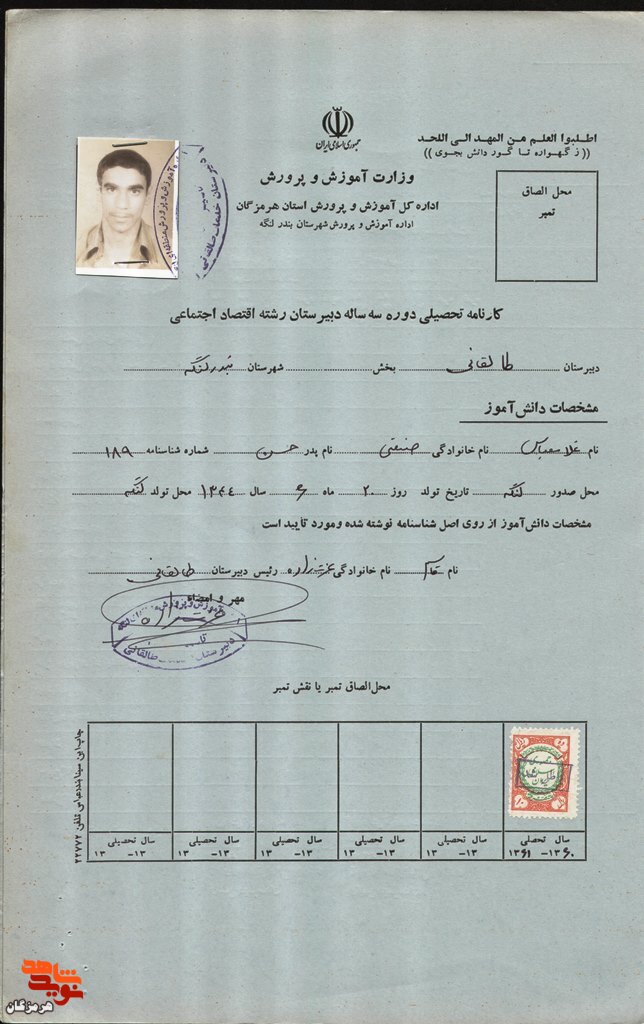 جمهوری اسلامی ایران
اطلبوا العلم من المهد الی اللحد
((ز گهواره تا گور دانش بجوی))
وزارت آموزش و پرورش
اداره کل آموزش و پرورش استان هرمزگان
اداره آموزش و پرورش شهرستان بندر لنگه
محل الصاق
تمبر
کارنامه تحصیلی دوره سه ساله دبیرستان رشته اقتصاد اجتماعی
دبیرستان طالقانی بخش شهرستان بندرلنگه
مشخصات دانش آموز
نام غلامعباس نام خانوادگی نام پدر حسن شماره شناسنامه ۱۸۹
محل صدور لنگه تاریخ تولد روز ۲۰ ماه ۶ سال ۱۳۴۴ محل تولد لنگه
مشخصات دانش آموز از روی اصل شناسنامه نوشته شده و مورد تایید است
نام نام خانوادگی رئیس دبیرستان طالقانی
مهر و امضاء
محل الصاق تمبر یا نقش تمبر
سال تحصیلی سال تحصیلی سال تحصیلی سال تحصیلی سال تحصیلی سال تحصیلی
۱۳۶۰-۱۳۶۱ ۱۳-۱۳ ۱۳-۱۳ ۱۳-۱۳ ۱۳-۱۳ ۱۳-۱۳
چاپ ابن سینا بندرعباس تلفن ۲۲۷۷۲
نوید شاهد
هرمزگان